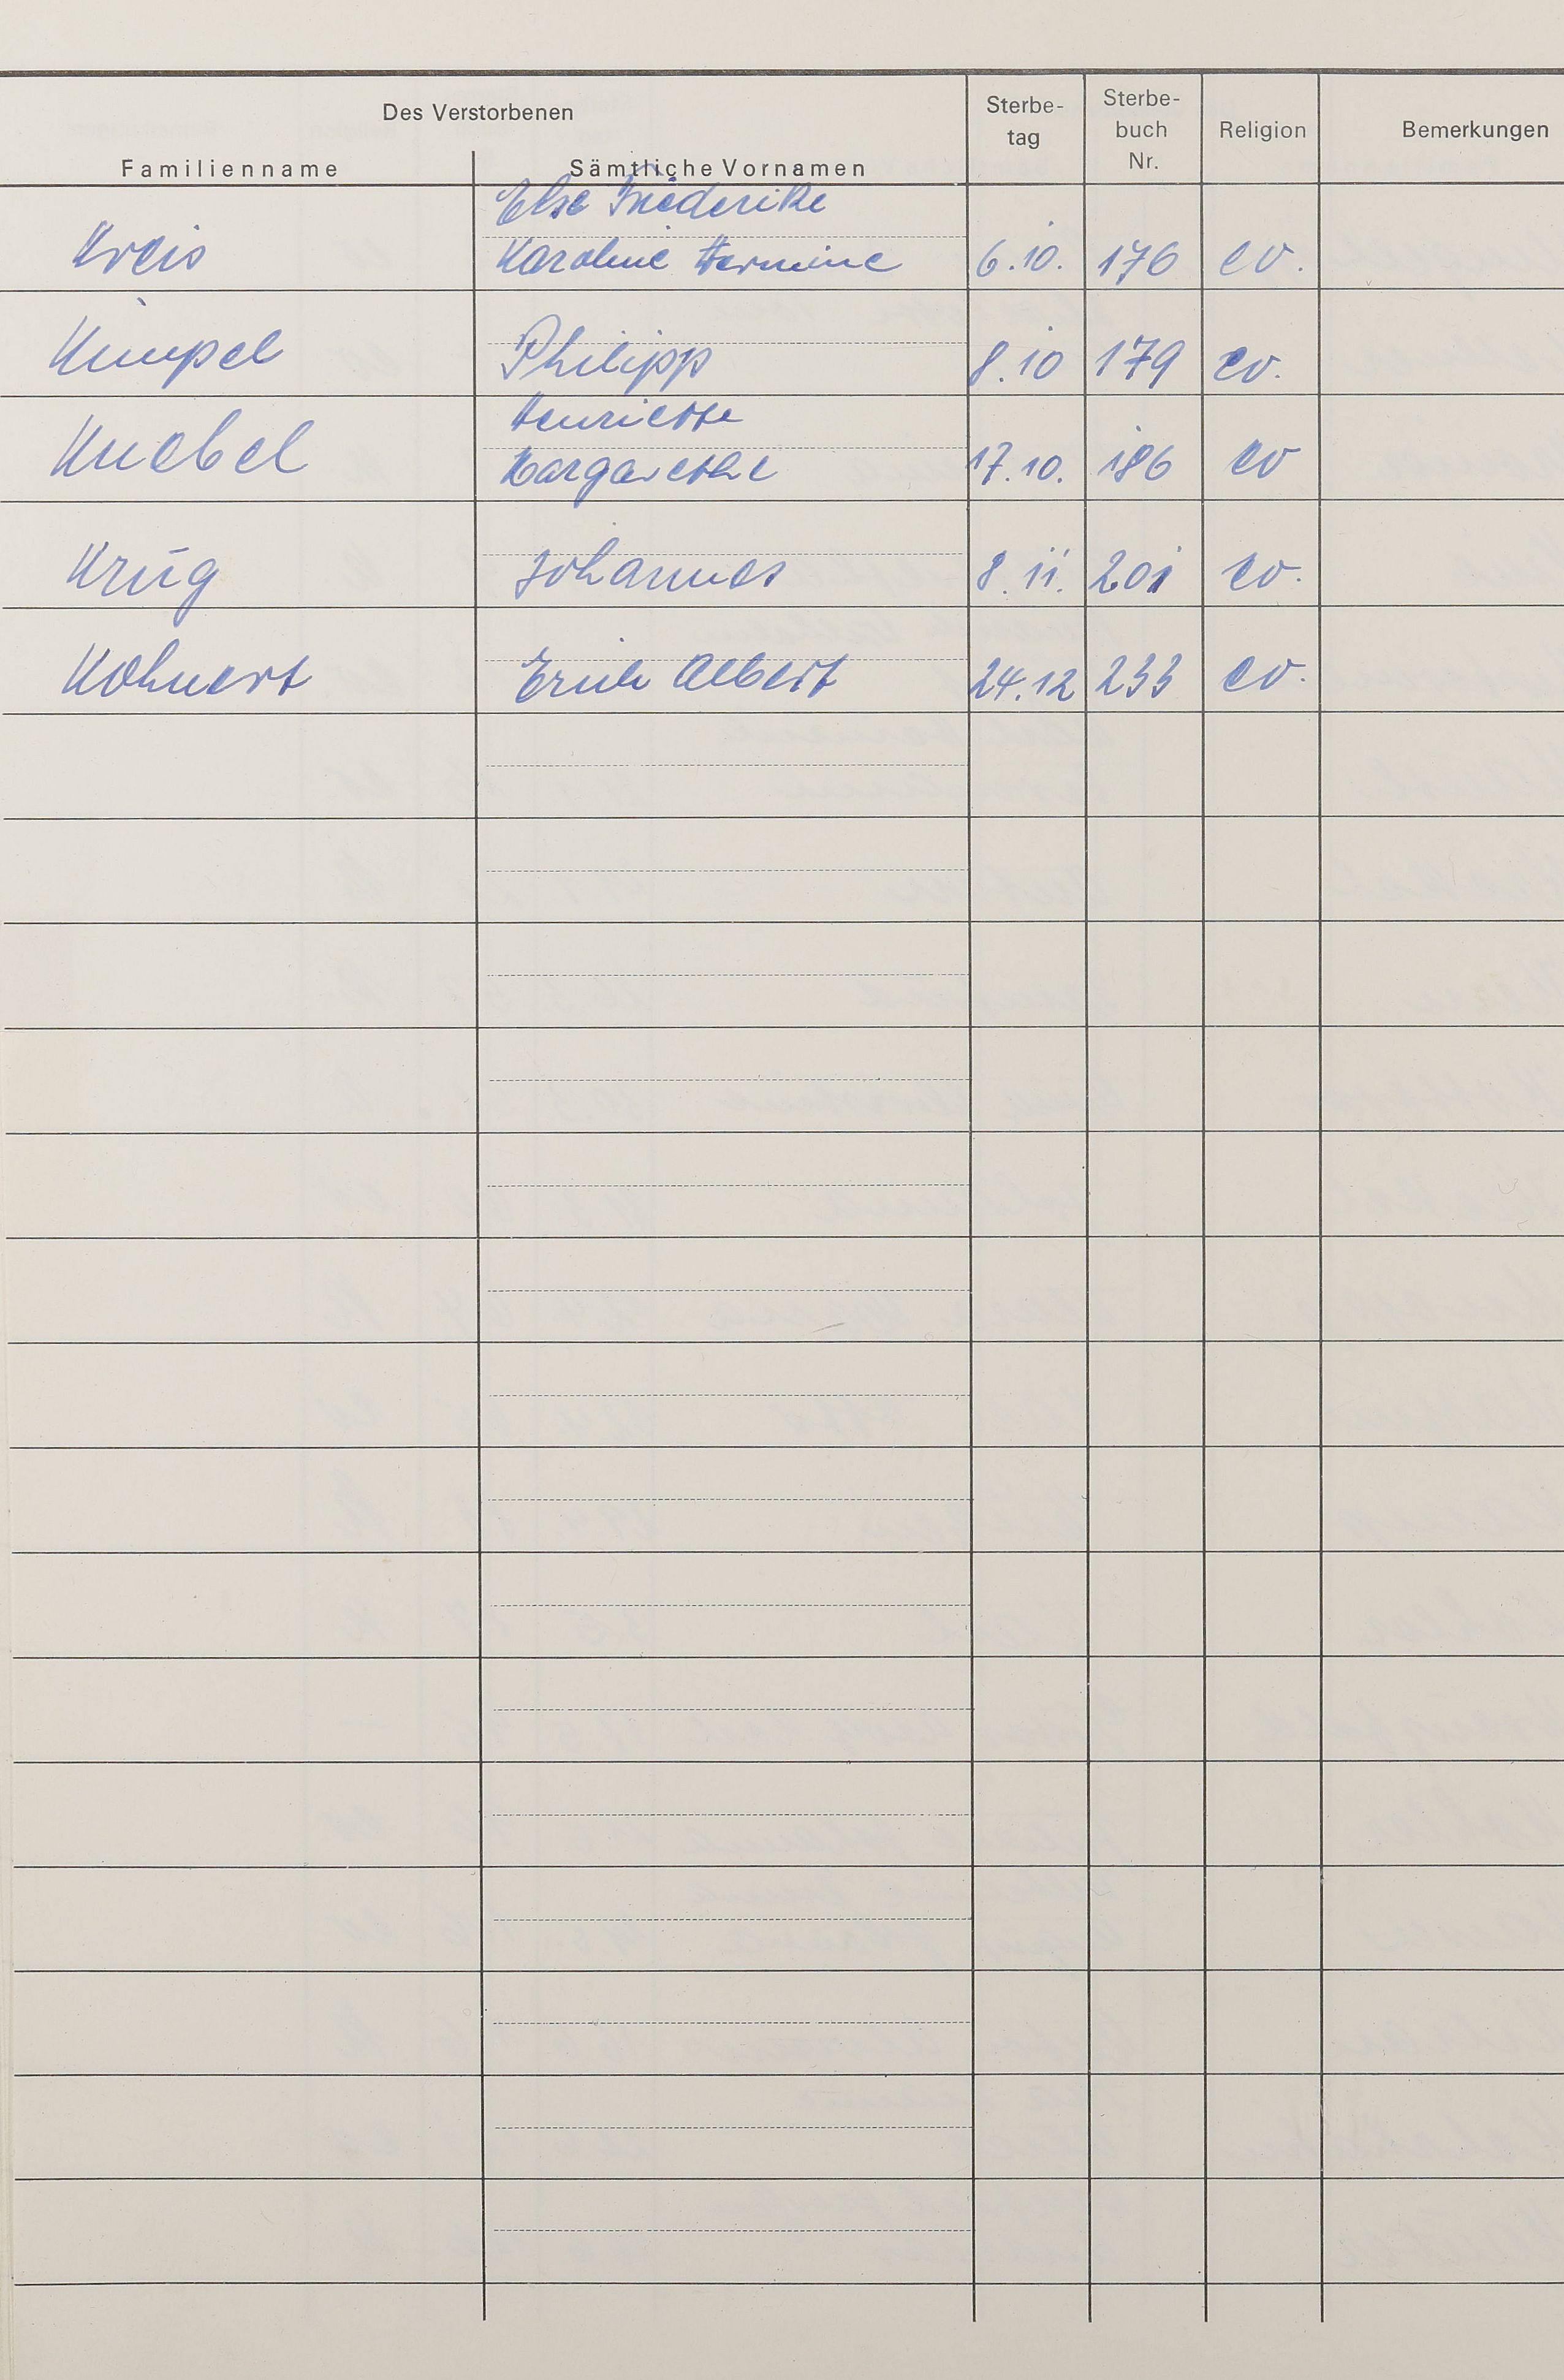 Des Verstorbenen
Familienname
Sämtliche Vornamen
Sterbe-
tag
Sterbe-
buch
Nr.
Religion
Bemerkungen
Else Friederike
Kreis Karoline Hermine 6.10. 176 ev.
Kimpel Philipp 8.10 179 ev.
Henriette
Knebel Margarethe 17.10. 186 ev
Krug Johannes 8.11. 201 ev.
Kohnert Erich Albert 24.12 233 ev.